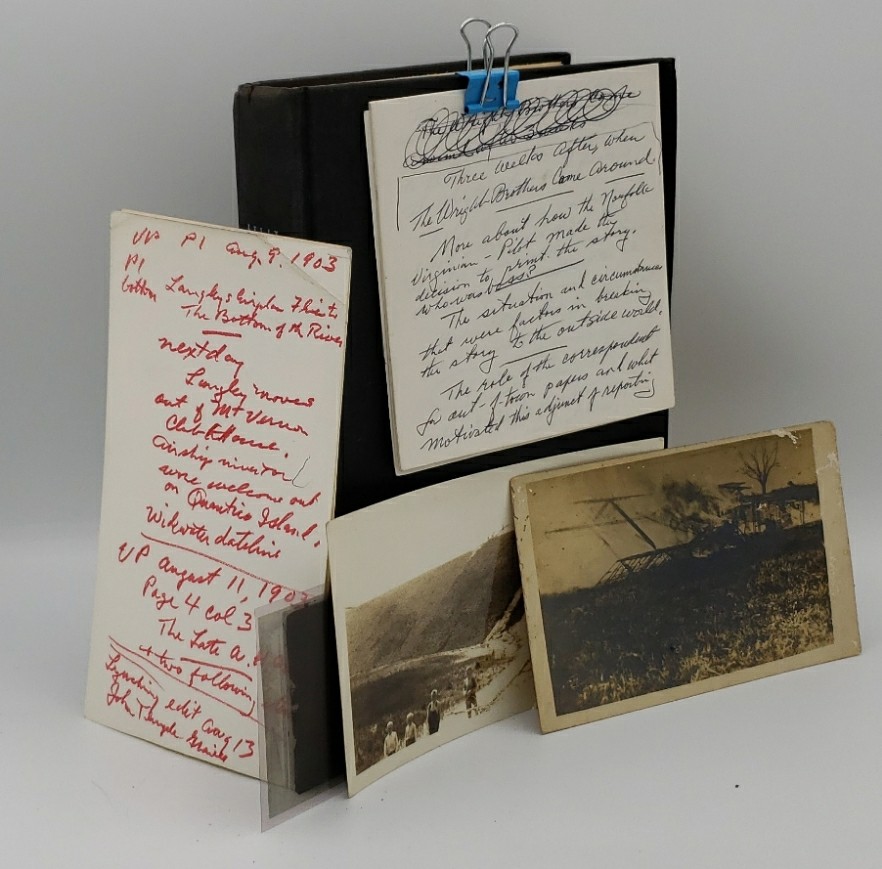 VP P1 Aug. 9. 1903
P1
bottom
Langley's Airplan Flies to
The Bottom of the River
next day
Langley moves
out of Mt Vernon
Club House.
Airship inventor
wore welcome out
on Quantico Island.
Widewater dateline
VP August 11, 1903
Page 4 col 3
The Late A.
+ two following
Lynching edit Aug 13
John Temple Graves
The Wright Brothers Come
Three weeks After, when
The Wright Brothers Come Around
More about how the Norfolk
Virginian-Pilot made the
decision to print the story.
who was boss?
The situation and circumstances
that were factors in breaking
the story to the outside world.
The role of the correspondent
for out-of-town papers and what
motivated this adjunct of reporting